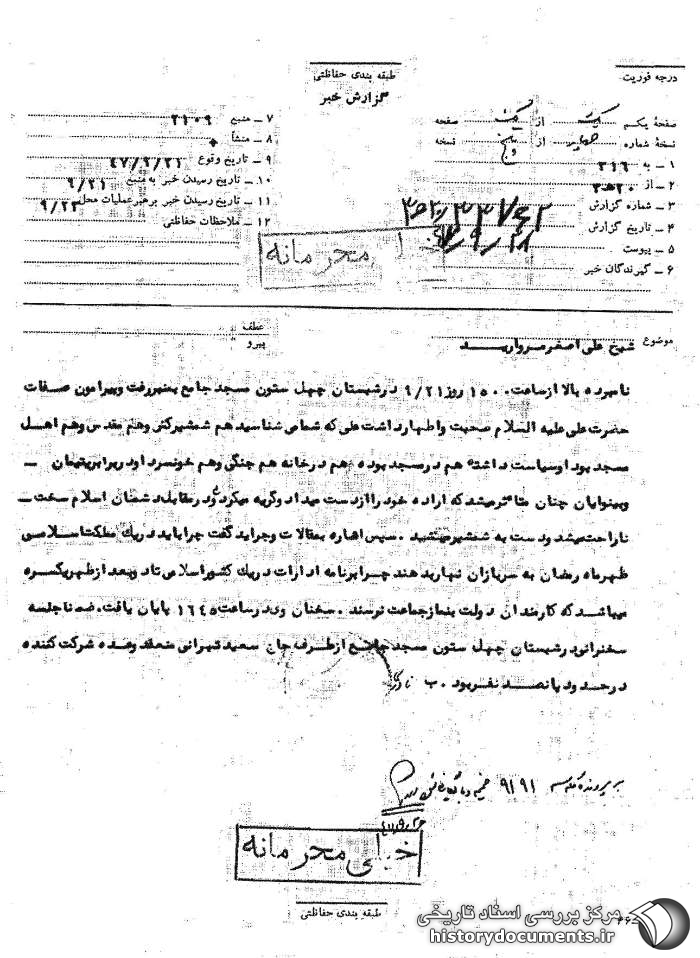 درجه فوریت
طبقه بندی حفاظتی
گزارش خبر
صفحهٔ یکم یک از یک صفحه
نسخهٔ شماره چهار از پنج نسخه
۱ ــ به ۳۱۶
۲ ــ از ۲۰ ه ۳
۳ ــ شماره گزارش
۴ ــ تاریخ گزارش
۵ ــ پیوست
۶ ــ گیرندگان خبر
۷ ــ منبع ۲۱۰۹
۸ ــ منشأ
۹ ــ تاریخ وقوع ۴۷/۹/۲۱
۱۰ ــ تاریخ رسیدن خبر به منبع ۹/۲۱
۱۱ ــ تاریخ رسیدن خبر برهبر عملیات محل ۹/۲۳
۱۲ ــ ملاحظات حفاظتی
محرمانه
موضوع شیخ علی اصغر مروارید
عطف
پیرو
نامبرده بالا از ساعت ۱۵۰۰ روز ۹/۲۱ در شبستان چهل ستون مسجد جامع بمنبر رفت و پیرامون صفات
حضرت علی علیه السلام صحبت و اظهار داشت علی که شما می شناسید هم شمشیر کش و هم مقدس و هم اهل
مسجد بود او سیاست داشته هم در مسجد بوده هم در خانه هم جنگی و هم خونسرد او در برابر یتیمان ــ
و بینوایان چنان متأثر میشد که اراده خود را از دست میداد و گریه میکرد و در مقابل دشمنان اسلام سخت ــ
ناراحت میشد و دست به شمشیر میشد . سپس اشاره بمقالات و جراید گفت چرا باید در یک مملکت اسلامی
ظهر ماه رمضان به سربازان نهار بدهند چرا برنامه ادارات در یک کشور اسلامی تا دو بعد از ظهر یکسره
میباشد که کارمندان دولت بنماز جماعت نرسند . سخنان وی در ساعت ۱۶۴۵ پایان یافت. ضمناً جلسه
سخنرانی در شبستان چهل ستون مسجد جامع از طرف حاج سعید تهرانی منعقد و عده شرکت کننده
در حدود پانصد نفر بود . ب
۹۱۹۱
خیلی محرمانه
طبقه بندی حفاظتی
مرکز بررسی اسناد تاریخی
historydocuments.ir